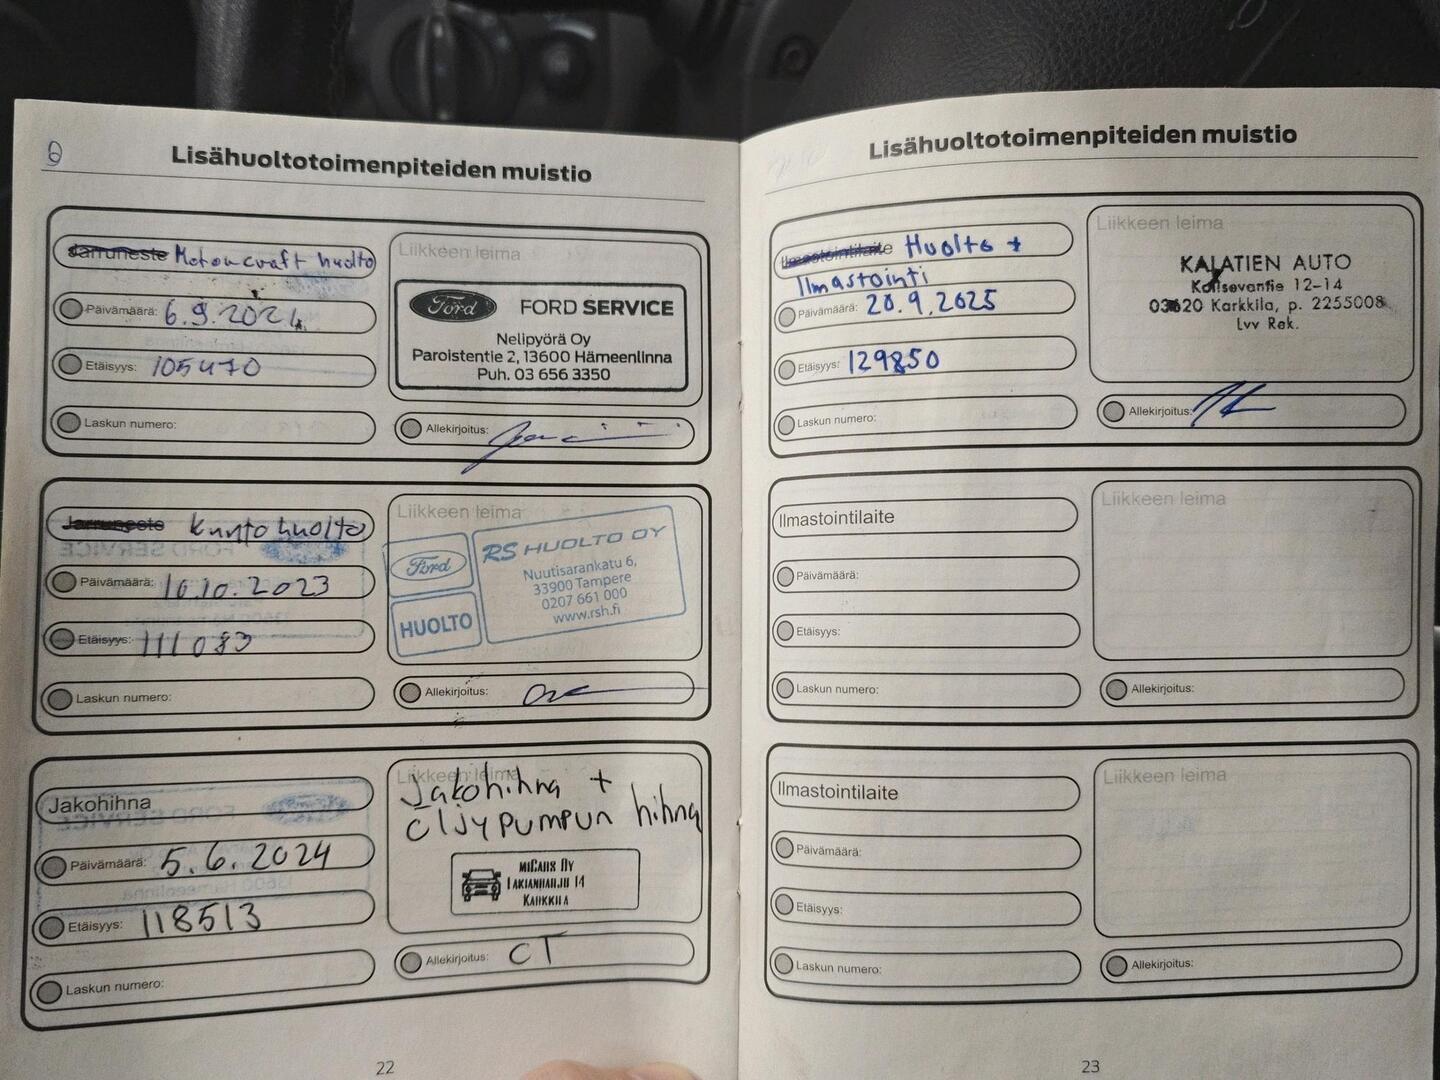 Lisähuoltotoimenpiteiden muistio
Jarruneste Motorcraft huolto
Päivämäärä: 6.9.2021
Etäisyys: 105470
Laskun numero:
Liikkeen leima
Ford FORD SERVICE
Nelipyörä Oy
Paroistentie 2, 13600 Hämeenlinna
Puh. 03 656 3350
Allekirjoitus:
Jarruneste kunto huolto
Päivämäärä: 10.10.2023
Etäisyys: 111083
Laskun numero:
Liikkeen leima
Ford
HUOLTO
RS HUOLTO OY
Nuutisarankatu 6,
33900 Tampere
0207 661 000
www.rsh.fi
Allekirjoitus:
Jakohihna
Päivämäärä: 5.6.2024
Etäisyys: 118513
Laskun numero:
Liikkeen leima
Jakohihna +
öljypumpun hihna
MiCars Oy
14
Karkkila
Allekirjoitus: CT
22
Lisähuoltotoimenpiteiden muistio
Ilmastointilaite Huolto +
Ilmastointi
Päivämäärä: 20.9.2025
Etäisyys: 129850
Laskun numero:
Liikkeen leima
KALATIEN AUTO
12-14
03620 Karkkila, p. 2255008
Lvv Rek.
Allekirjoitus:
Ilmastointilaite
Päivämäärä:
Etäisyys:
Laskun numero:
Liikkeen leima
Allekirjoitus:
Ilmastointilaite
Päivämäärä:
Etäisyys:
Laskun numero:
Liikkeen leima
Allekirjoitus:
23